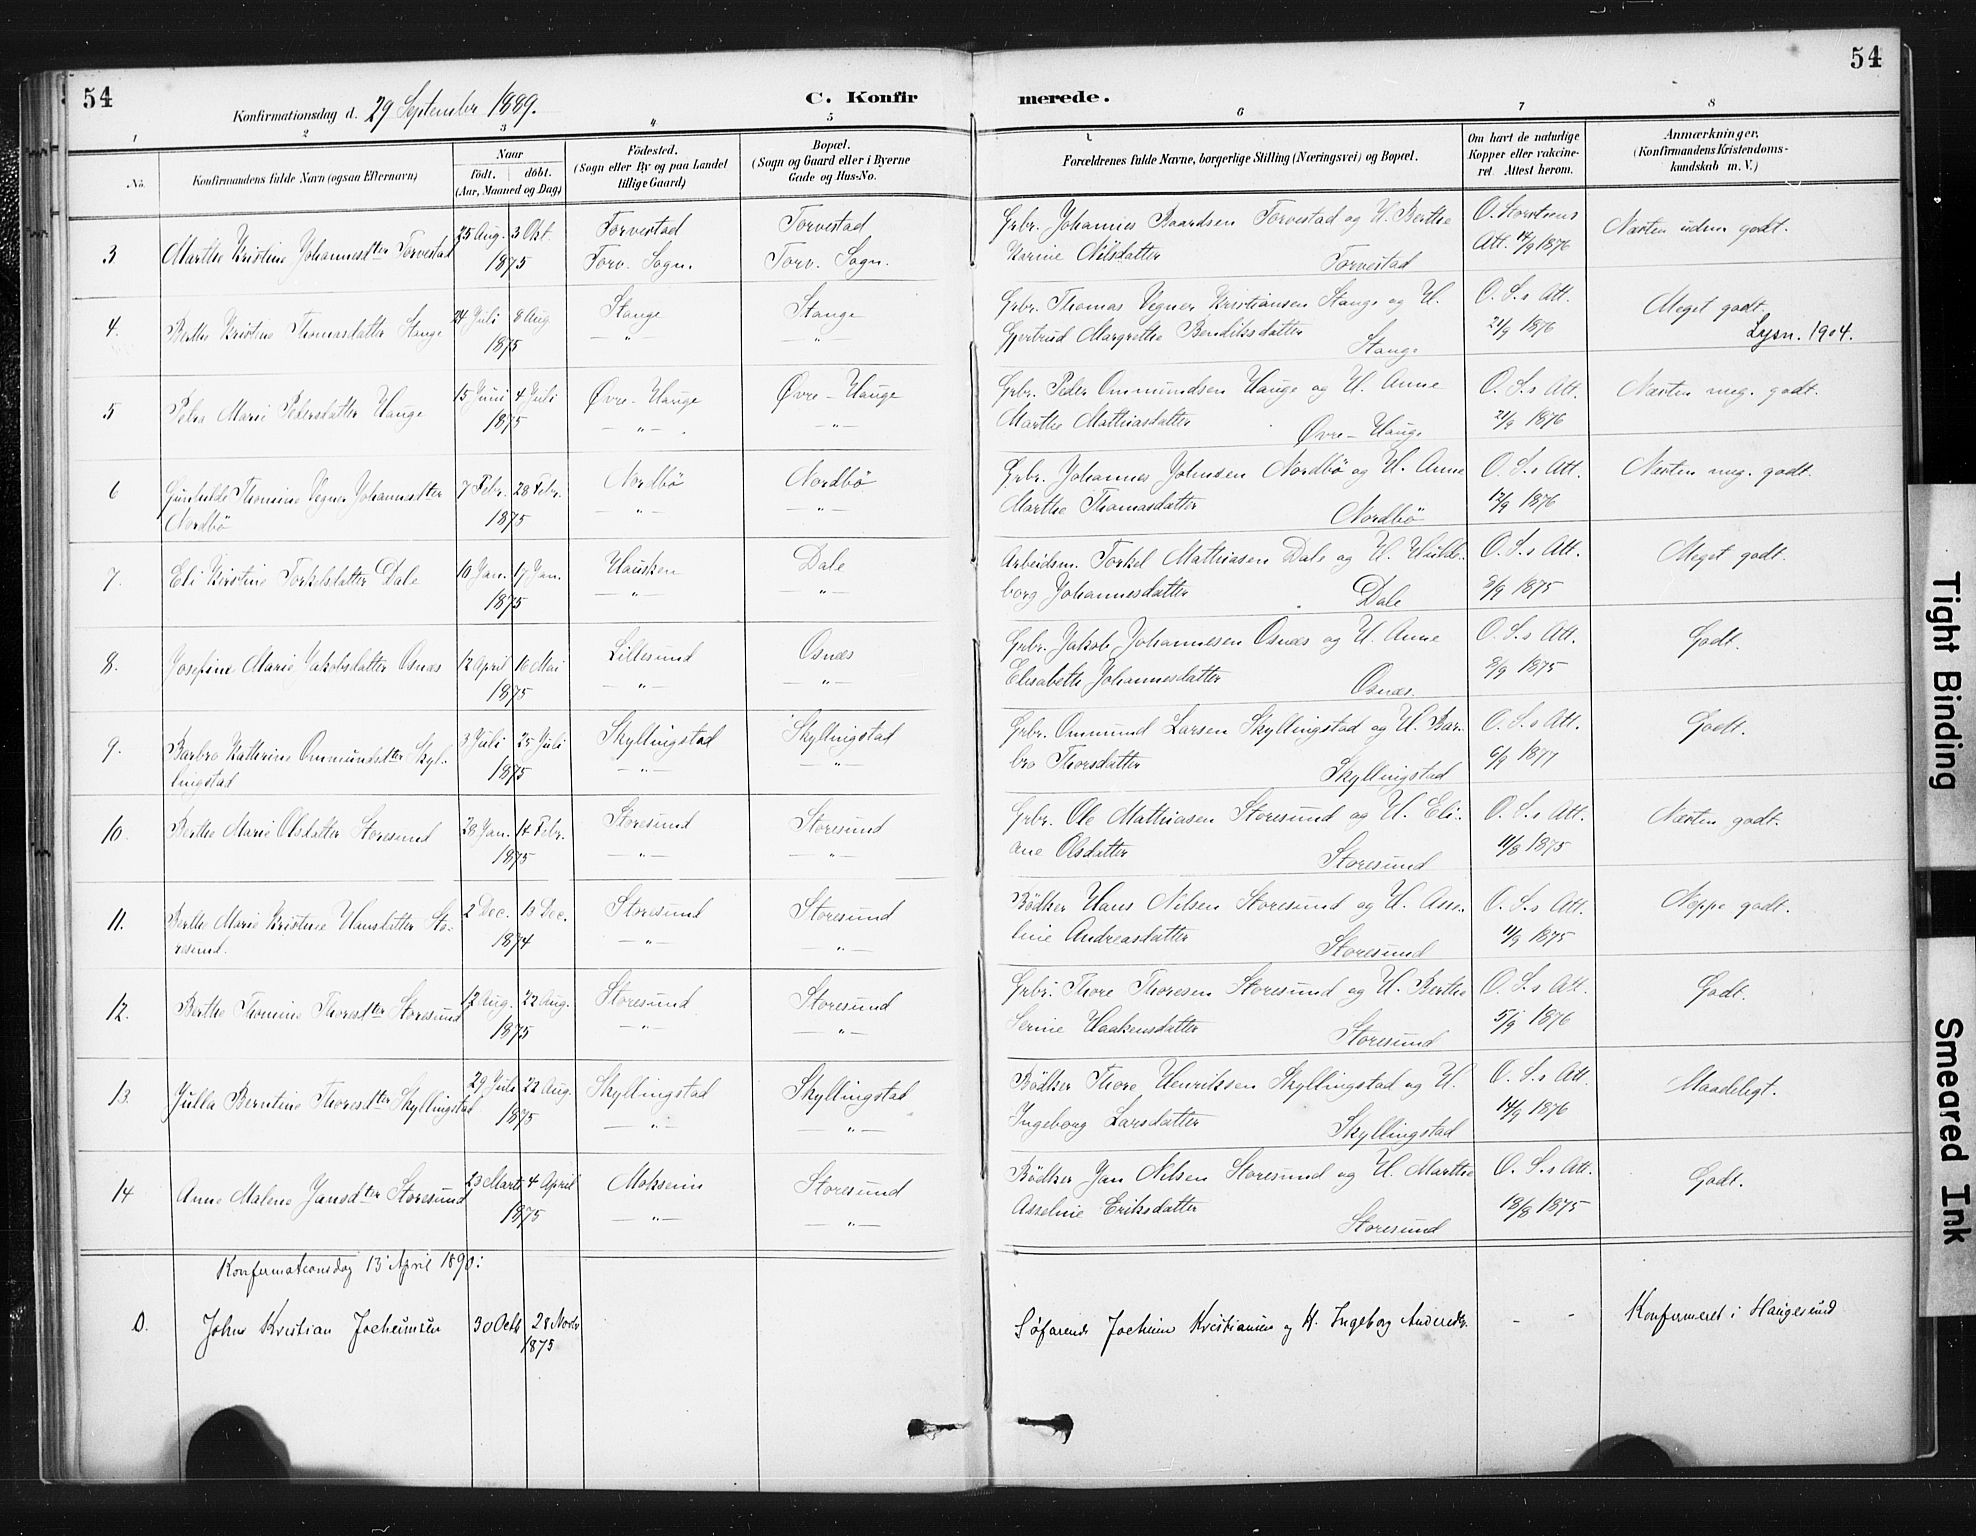 54
Konfirmationsdag d. 29 September 1889.
C. Konfir
merede.
54
1 2 3 4 5 6 7 8
No.
Konfirmandens fulde Navn (ogsaa Efternavn)
Naar
født. døbt.
(Aar, Maaned og Dag)
Fødested.
(Sogn eller By og paa Landet
tillige Gaard)
Bopæl.
(Sogn og Gaard eller i Byerne
Gade og Hus-No.
Forældrenes fulde Navne, borgerlige Stilling (Næringsvei) og Bopæl.
Om havt de naturlige
Kopper eller vakcine-
ret. Attest herom.
Anmærkninger.
(Konfirmandens Kristendoms-
kundskab m. V.)
3 Marthe Kristine Johannesdtr Torvestad 25 Aug. 3 Okt. Torvestad Torvestad Grbr. Johannes Baardsen Torvestad og H. Berthe O. Storstens Næsten uden godt.
1875 Torv. Sogn. Torv. Sogn. Karine Nilsdatter Torvestad Att. 14/9 1876
4. Berthe Kristine Thomasdatter Stange 24 Juli 8 Aug Stange Stange Grbr. Thomas Vegner Kristiansen Stange og H. O. S.s Att. Meget godt.
1875 —"— —"— Gjertrud Margrethe Bendiksdatter Stange 21/9 1876 Lysn. 1904.
5 Petra Marie Pedersdatter Hauge 15 Juni 4 Juli Øvre-Hauge Øvre-Hauge Grbr. Peder Ommundsen Hauge og H. Anne O. S.s Att. Næsten meg. godt.
1875 —"— —"— Marthe Mathiasdatter Øvre-Hauge 21/9 1876
6 Gunhilde Thomine Vegner Johannesdtter 7 Febr. 28 Febr. Nordbö Nordbö Grbr. Johannes Johnsen Nordbö og H. Anne O. S.s Att. Næsten meg. godt
Nordbö 1875 —"— —"— Marthe Thomasdatter Nordbö 12/9 1876
7. Eli Kristine Torkelsdatter Dale 10 Jan. 17 Jan. Hausken Dale Arbeidsm. Torkel Mathiasen Dale og H. Huld- O. S.s Att. Meget godt.
1875 —"— —"— borg Johannesdatter Dale 8/9 1875
8. Josefine Marie Jakobsdatter Osnæs 12 April 16 Mai Lillesund Osnæs Grbr. Jakob Johannesen Osnæs og H. Anne O. S.s Att. Godt.
1875 —"— —"— Elisabeth Johannesdatter Osnæs. 8/9 1875
9. Barbro Kathrine Ommundsdter Skyl- 3 Juli 25 Juli Skyllingstad Skyllingstad Grbr. Ommund Larsen Skyllingstad og H. Bar- O. S.s Att. Godt.
lingstad 1875 —"— —"— bro Thorsdatter Skyllingstad 6/9 1877
10. Berthe Marie Olsdatter Storesund 28 Jan. 14 Febr. Storesund Storesund Grbr. Ole Mathiasen Storesund og H. Eli- O. S.s Att. Næsten godt.
1875 —"— —"— ane Olsdatter Storesund 11/8 1875
11. Berthe Marie Kristine Hansdatter Sto- 2 Dec. 13 Dec. Storesund Storesund Bödker Hans Nilsen Storesund og H. Asse- O. S.s Att. Neppe godt.
resund. 1874 —"— —"— line Andreasdatter Storesund 11/9 1875
12. Berthe Thomine Thoresdter Storesund 12 Aug. 22 Aug. Storesund Storesund Grbr. Thore Thoresen Storesund og H. Berthe O. S.s Att. Godt.
1875 —"— —"— Serine Haakensdatter Storesund 5/9 1876
13. Julla Berntine Thoresdter Skyllingstad 29 Juli 22 Aug. Skyllingstad Skyllingstad Bödker Thore Henrikssen Skyllingstad og H. O. S.s Att. Maadeligt.
1875 —"— —"— Ingeborg Larsdatter Skyllingstad 14/9 1876
14 Anne Malene Jansdter Storesund 23 Marts 4 April Moksein Storesund Bödker Jan Nilsen Storesund og H. Marthe O. S.s Att. Godt.
1875 —"— —"— Asseline Eriksdatter Storesund 18/8 1875
Konfirmationsdag 13 April 1890:
0. John Kristian Jocheimsen 30 Octb 28 Novbr Søfarende Jocheim Kristiansen og H. Ingeborg Andersdr. - - Konfirmeret i Haugesund
1875
Tight Binding
Smeared Ink